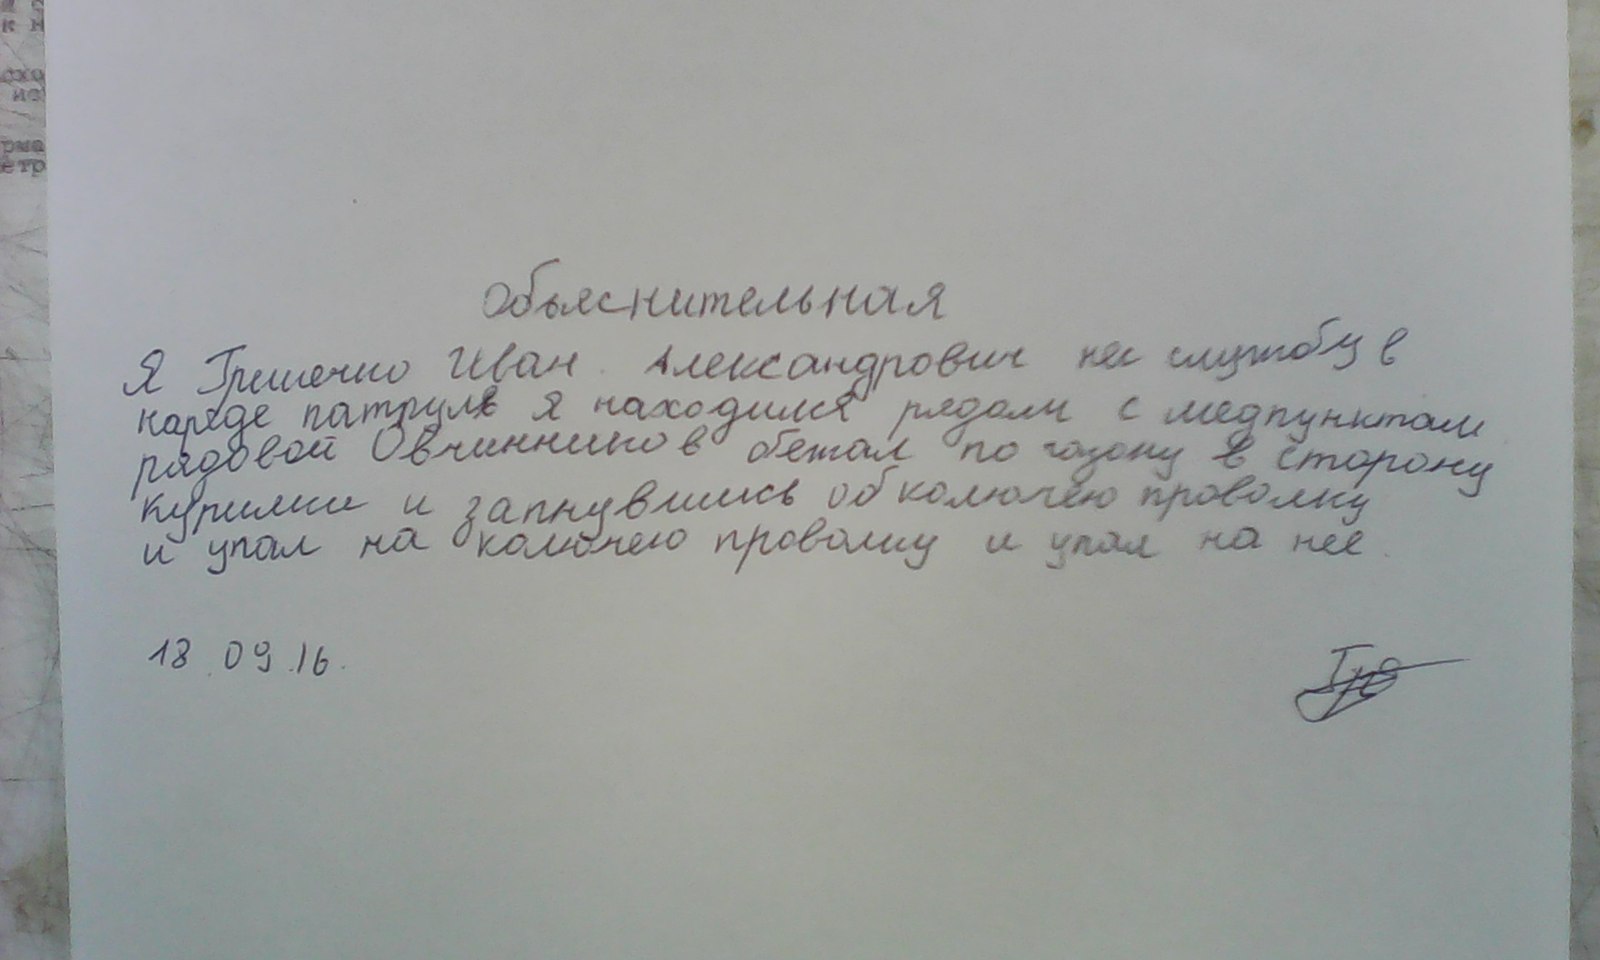 Объяснительная
Я Гришечко Иван Александрович нес службу в
наряде патруль я находился рядом с медпунктам
рядовой Овчинников бежал по газону в сторону
курилки и запнувшись об колючею проволку
и упал на колючею проволку и упал на нее.
18.09.16.